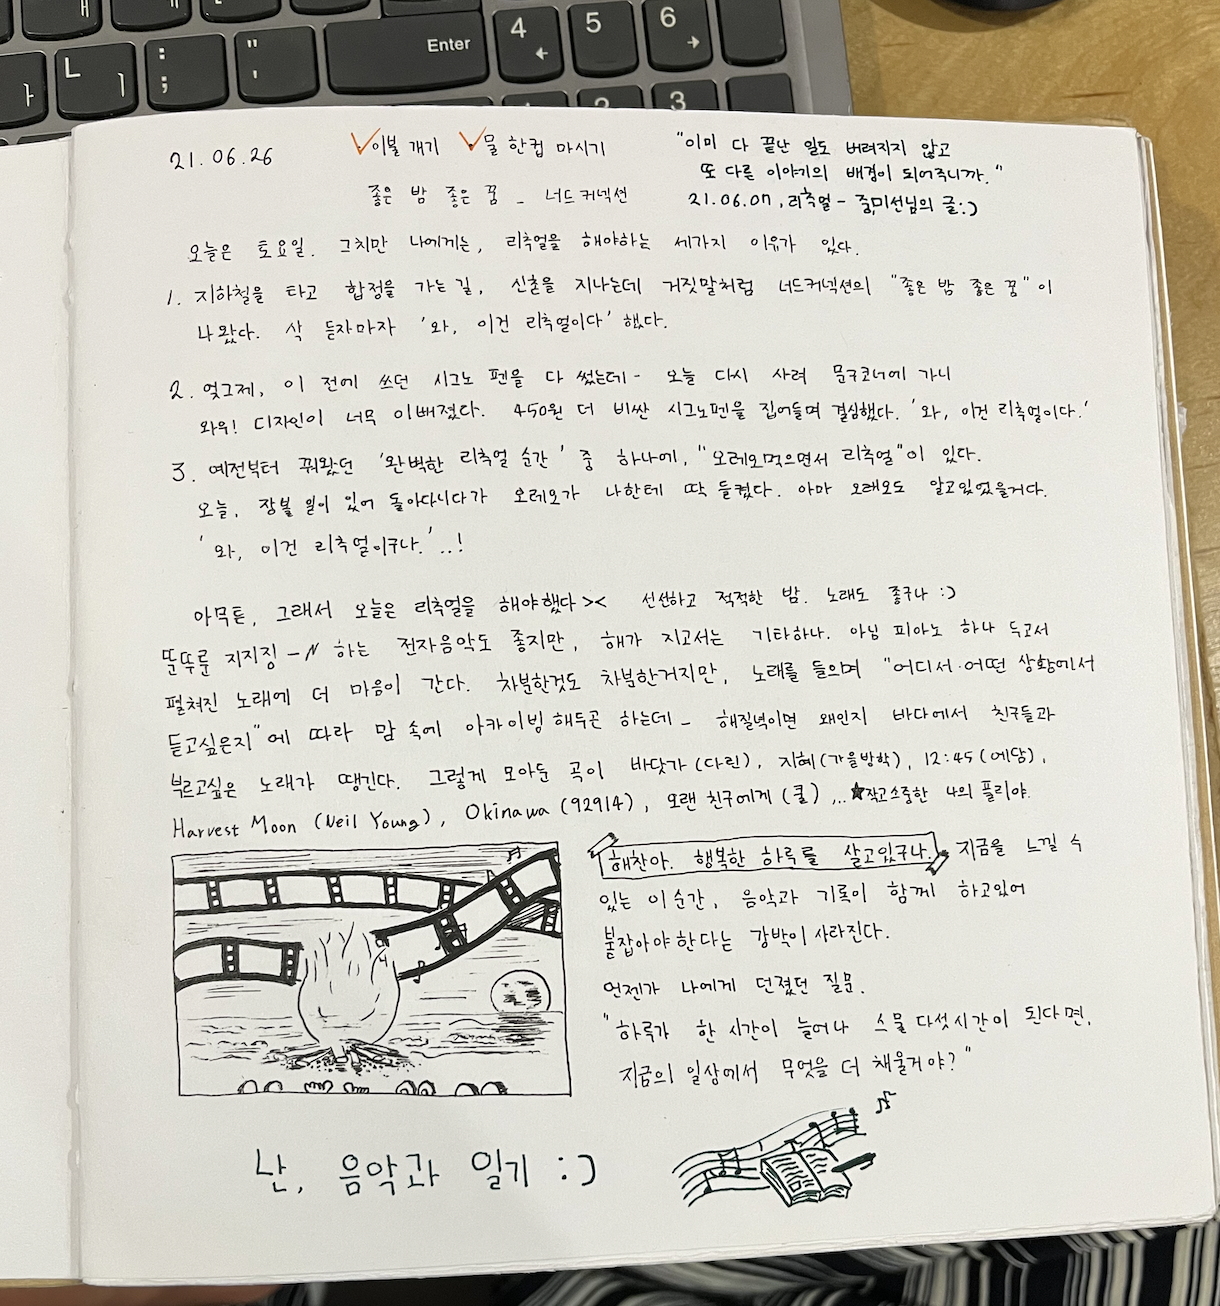 Enter
4
5
6
ㄴ
:
;
"
'
ㅏ
ㅣ
2
3
21.06.26
이불 개기 물 한컵 마시기
좋은 밤 좋은 꿈 - 너드커넥션
"이미 다 끝난 일도 버려지지 않고
또 다른 이야기의 배경이 되어주니까."
21.06.07, 리추얼 - 중,미선님의 글:)
오늘은 토요일. 그치만 나에게는, 리추얼을 해야하는 세가지 이유가 있다.
1. 지하철을 타고 합정을 가는 길, 신촌을 지나는데 거짓말처럼 너드커넥션의 "좋은 밤 좋은 꿈"이
나왔다. 삭 듣자마자 '와, 이건 리추얼이다' 했다.
2. 엊그제, 이 전에 쓰던 시그노 펜을 다 썼는데- 오늘 다시 사려 문구코너에 가니
와우! 디자인이 너무 이뻐졌다. 450원 더 비싼 시그노펜을 집어들며 결심했다. '와, 이건 리추얼이다.'
3. 예전부터 꿔왔던 '완벽한 리추얼 순간' 중 하나에, "오레오먹으면서 리추얼"이 있다.
오늘, 장볼 일이 있어 돌아다니다가 오레오가 나한테 딱 들켰다. 아마 오레오도 알고있었을거다.
'와, 이건 리추얼이구나.'..!
아무튼, 그래서 오늘은 리추얼을 해야했다>< 선선하고 적적한 밤. 노래도 좋구나 :)
뚠뚜룬 지지징 -~ 하는 전자음악도 좋지만, 해가 지고서는 기타하나. 아님 피아노 하나 두고서
펼쳐진 노래에 더 마음이 간다. 차분한것도 차분한거지만, 노래를 들으며 "어디서·어떤 상황에서
듣고싶은지"에 따라 맘 속에 아카이빙 해두곤 하는데 - 해질녘이면 왜인지 바다에서 친구들과
부르고싶은 노래가 땡긴다. 그렇게 모아둔 곡이 바닷가(다린), 지혜(가을방학), 12:45(에당),
Harvest Moon (Neil Young), Okinawa (92914), 오랜 친구에게 (쿨) ,.. ★작고소중한 나의 플리야.
해찬아. 행복한 하루를 살고있구나. 지금을 느낄 수
있는 이 순간, 음악과 기록이 함께 하고있어
붙잡아야 한다는 강박이 사라진다.
언젠가 나에게 던졌던 질문.
"하루가 한 시간이 늘어나 스물 다섯시간이 된다면,
지금의 일상에서 무엇을 더 채울거야?"
난, 음악과 일기 :)